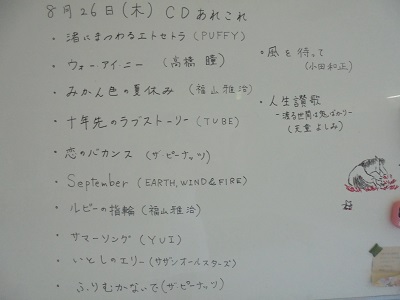 8月26日(木) CDあれこれ
・渚にまつわるエトセトラ(PUFFY)
・ウォー・アイ・ニー (高橋 瞳)
・みかん色の夏休み (福山雅治)
・十年先のラブストーリー(TUBE)
・恋のバカンス (ザ・ピーナッツ)
・September (EARTH, WIND & FIRE)
・ルビーの指輪 (福山雅治)
・サマーソング (YUI)
・いとしのエリー(サザンオールスターズ)
・ふりむかないで(ザ・ピーナッツ)
・風を待って
(小田和正)
・人生讃歌
-渡る世間は鬼ばかり-
(天童よしみ)